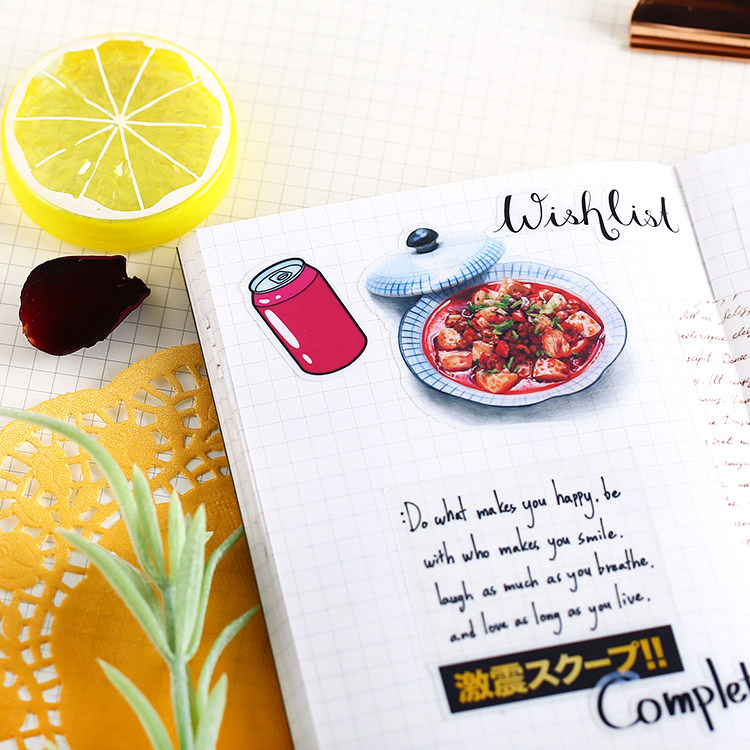 Wishlist
:Do what makes you happy. be
with who makes you smile.
laugh as much as you breathe.
and love as long as you live.
激震スクープ!!
Complet